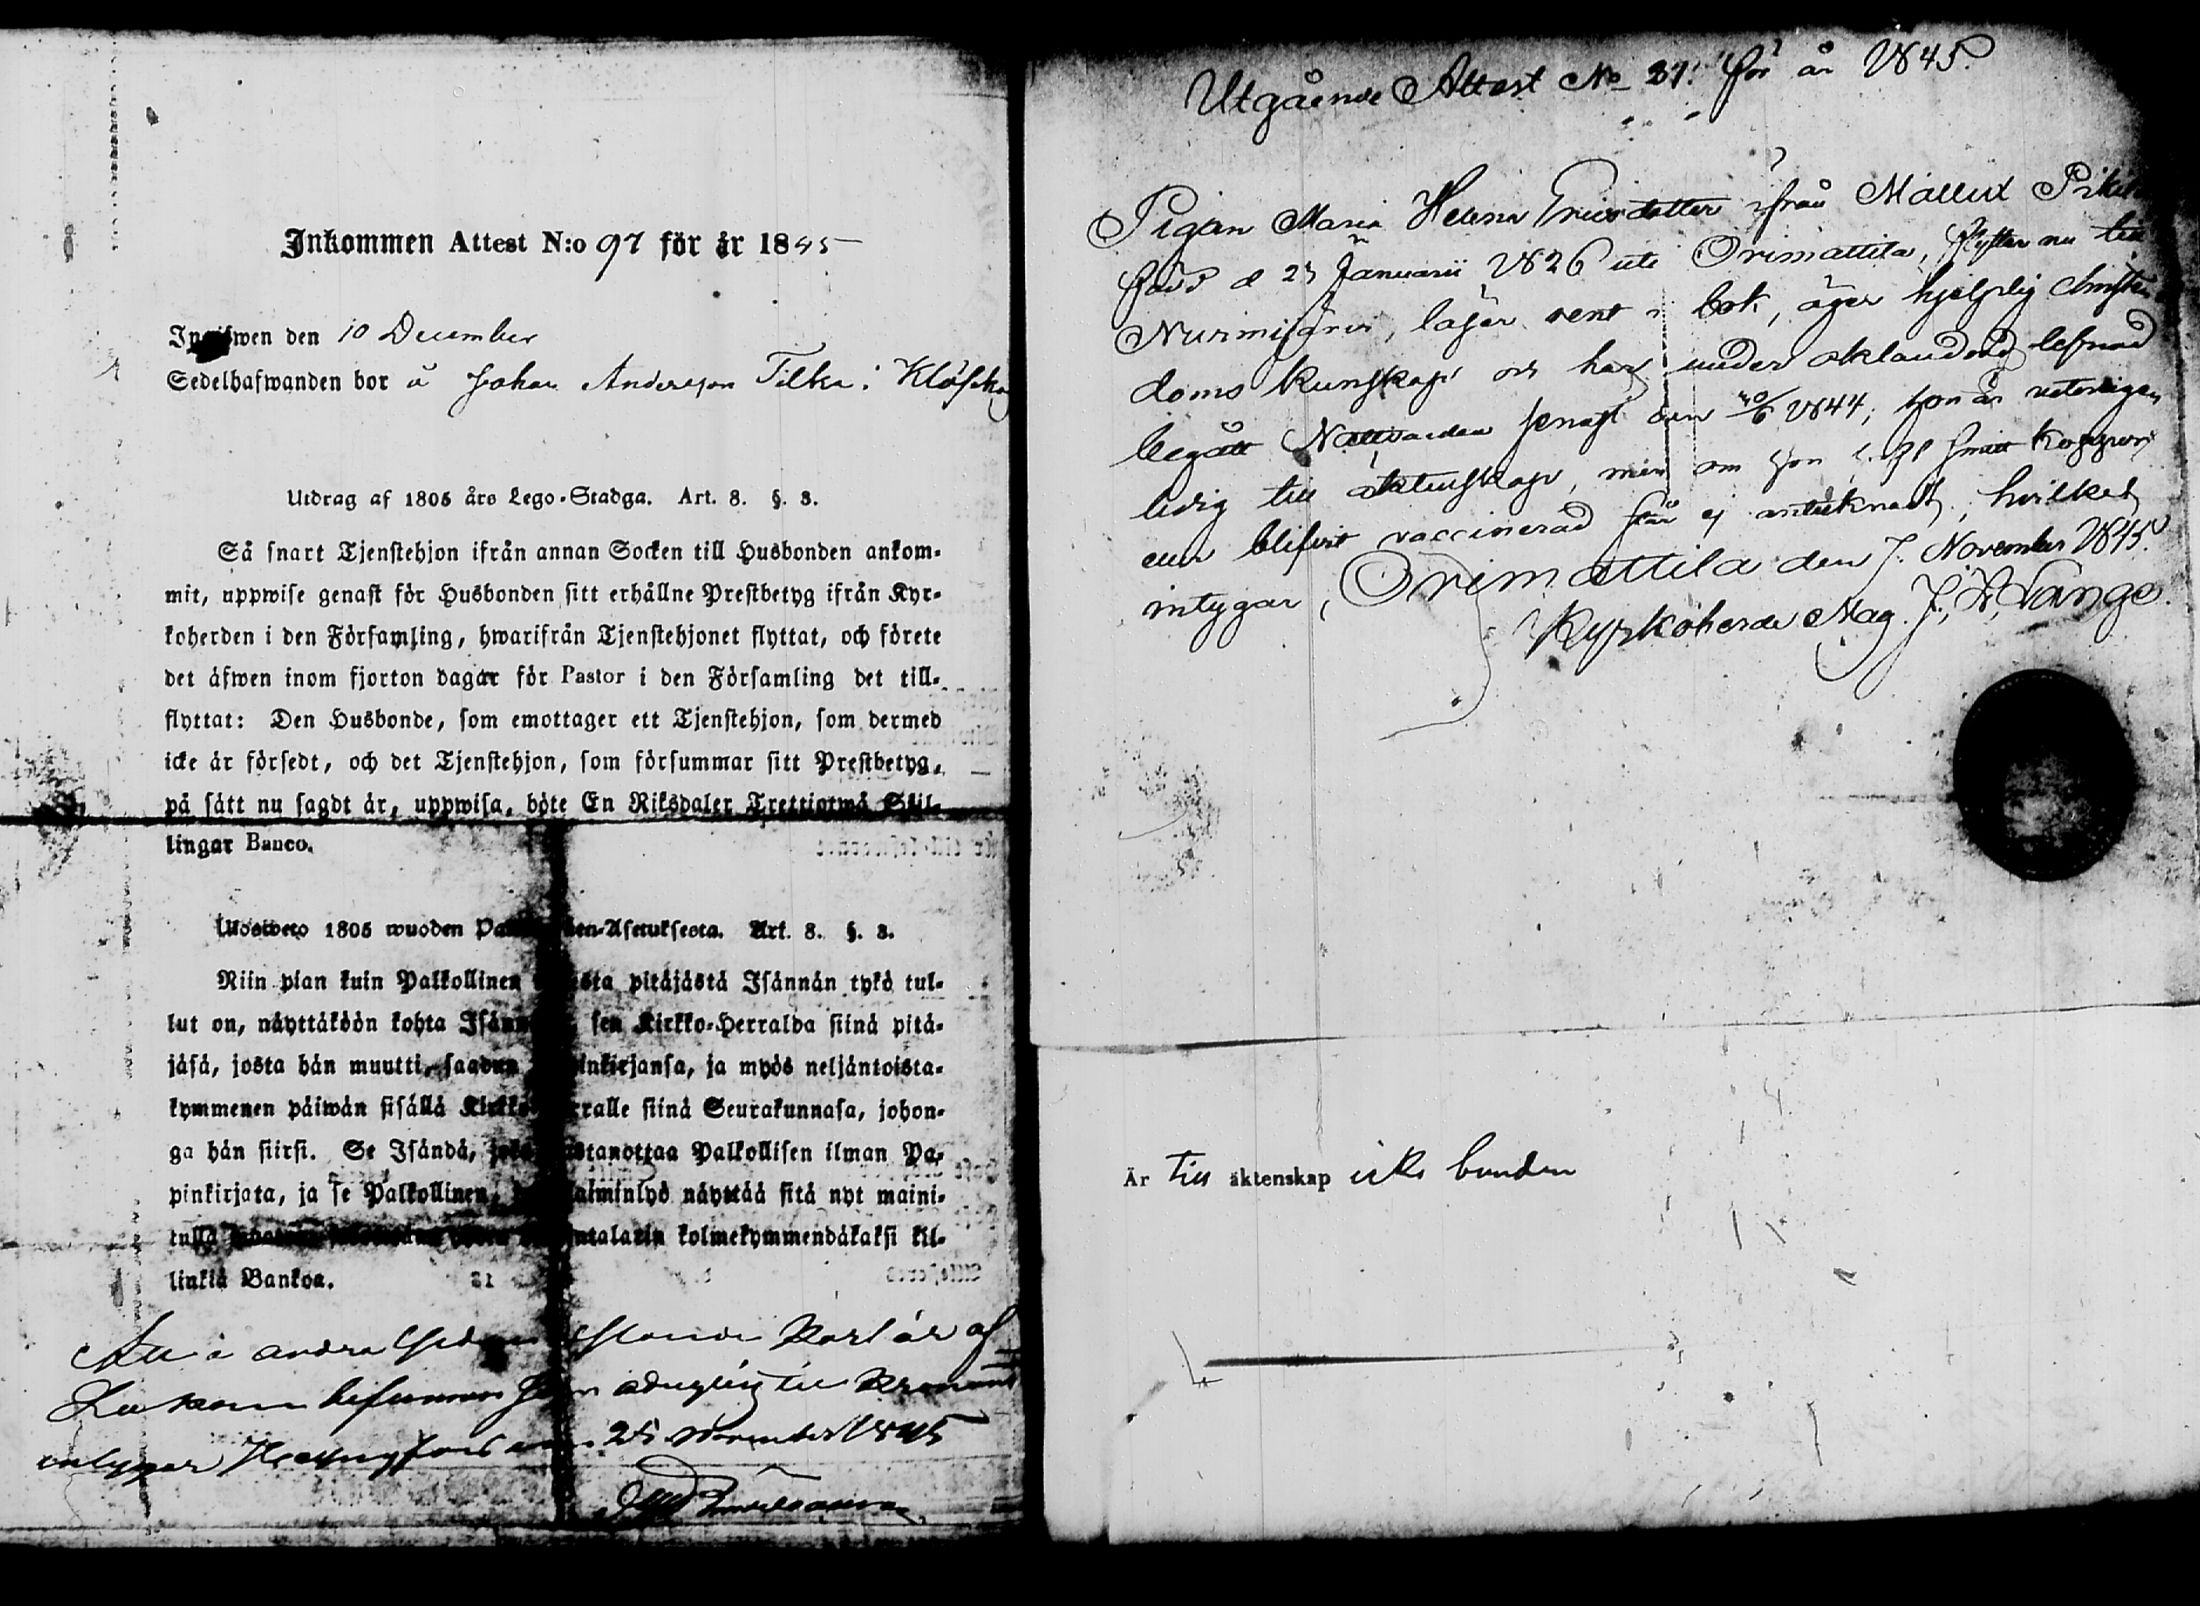 Inkommen Attest N:o 97 för år 1845
Ingifwen den 10 December
Sedelhafwanden bor å Johan Andersson Tilka i Klöfskog
Utdrag af 1805 års Lego-Stadga. Art. 8. §. 3.
Så snart Tjenstehjon ifrån annan Socken till Husbonden ankom-
mit, uppwise genast för Husbonden sitt erhållne Prestbetyg ifrån Kyr-
koherden i den Församling, hwarifrån Tjenstehjonet flyttat, och förete
det äfwen inom fjorton dagar för Pastor i den Församling det till-
flyttat: Den Husbonde, som emottager ett Tjenstehjon, som dermed
icke är försedt, och det Tjenstehjon, som försummar sitt Prestbetyg,
på sätt nu sagdt är, uppwisa, böte En Riksdaler Trettiotwå Skil-
lingar Banco.
Ulosweto 1805 wuoden Pa en-Asetuksesta. Art. 8. §. 3.
Niin pian kuin Palkollinen sta pitäjästä Isännän tykö tul-
lut on, näyttäköön kohta Isänn sen Kirkko-Herralda siinä pitä-
jäsä, josta hän muutti, saadun inkirjansa, ja myös neljäntoista-
kymmenen päiwän sisällä Kirkko rralle siinä Seurakunnasa, johon-
ga hän siirsi. Se Isändä, joka stanottaa Palkollisen ilman Pa-
pinkirjata, ja se Palkollinen, aiminlyö näyttää sitä nyt maini-
tulla ntalarin kolmekymmendäkaksi kil-
linkiä Bankoa.
Att i andra stående Karl är af
Läkare befunnen oduglig till Kronans
intygar Helsingfors den 25 November 1845
Utgående Attest No 31. för år 1845.
Pigan Maria Helena Ericsdotter ifrån Mallus
född d 23 Januarii 1826 uti Orimattila, flyttar nu till
Nurmijärvi, läser rent i bok, äger hjelplig christen
doms kunskap och har under oklandrad lefnad
begått Nattvarden senast den 1844; hon är veterligen
ledig till äktenskap, men om hon haft smitt Koppor
eller blifvit vaccinerad här ej antecknadt, hvilket
intygar, Orimattila den 7. November 1845.
Kyrkoherde Mag. J. H. Lange.
Är till äktenskap icke bunden